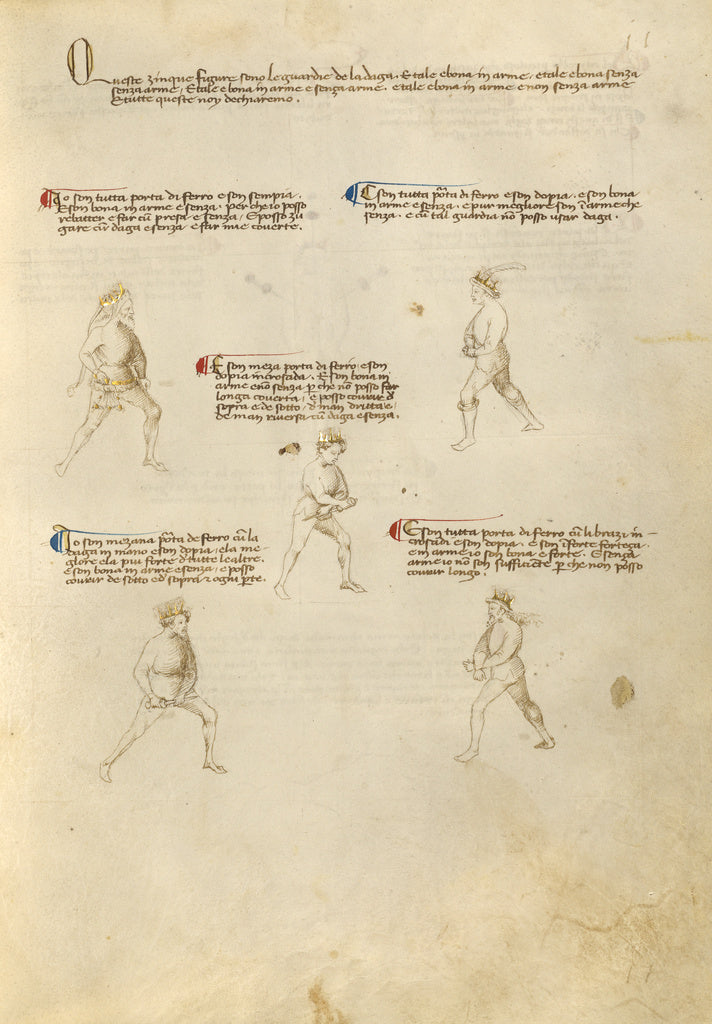 Queste zinque figure sono le guardie de la daga. E tale e bona in arme, e tale e bona senza
senza arme, E tale e bona in arme e senza arme. e tale e bona in arme e non senza arme
E tutte queste noy dechiaremo.
Io son tutta porta di ferro e son sempia.
E son bona in arme e senza. per che io posso
rebatter e far cũ presa e senza, E posso zu
gare cũ daga e senza e far mie coverte.
E son tutta pōta di ferro e son dopia. e son bona
in arme e senza. e pur megliore son ī arme che
senza. e cũ tal guardia nō posso usar daga.
E son meza porta di ferro e son
dopia incrosada. E son bona in
arme e nō senza ꝑ che nō posso far
longa coverta, e posso courir d
sopra e de sotto, d man dritta e
de man riversa cũ daga e senza.
Io son mezana pōta de ferro cũ la
daga in mano e son dopia, e la me-
gliore e la piu forte d tutte le altre.
E son bona in arme e senza. e posso
courir de sotto ed sopra ⁊ ogni ꝑte.
E son tutta porta di ferro cũ li brazi in-
crosadi e son dopia. e son ī forte forteza.
e in arme io son bona e forte. E senza
arme io nō son sufficiẽte ꝑ che non posso
courir longo.